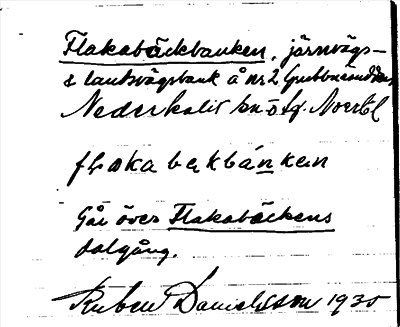 Flakabäckbanken, järnvägs-
& landsvägsbank å nr 2 Grubbnäsudden
Nederkalix sn o. tg. Norrb. l.
flakabękbáṇken
Går över Flakabäckens
dalgång.
Ruben Danielsson 1935